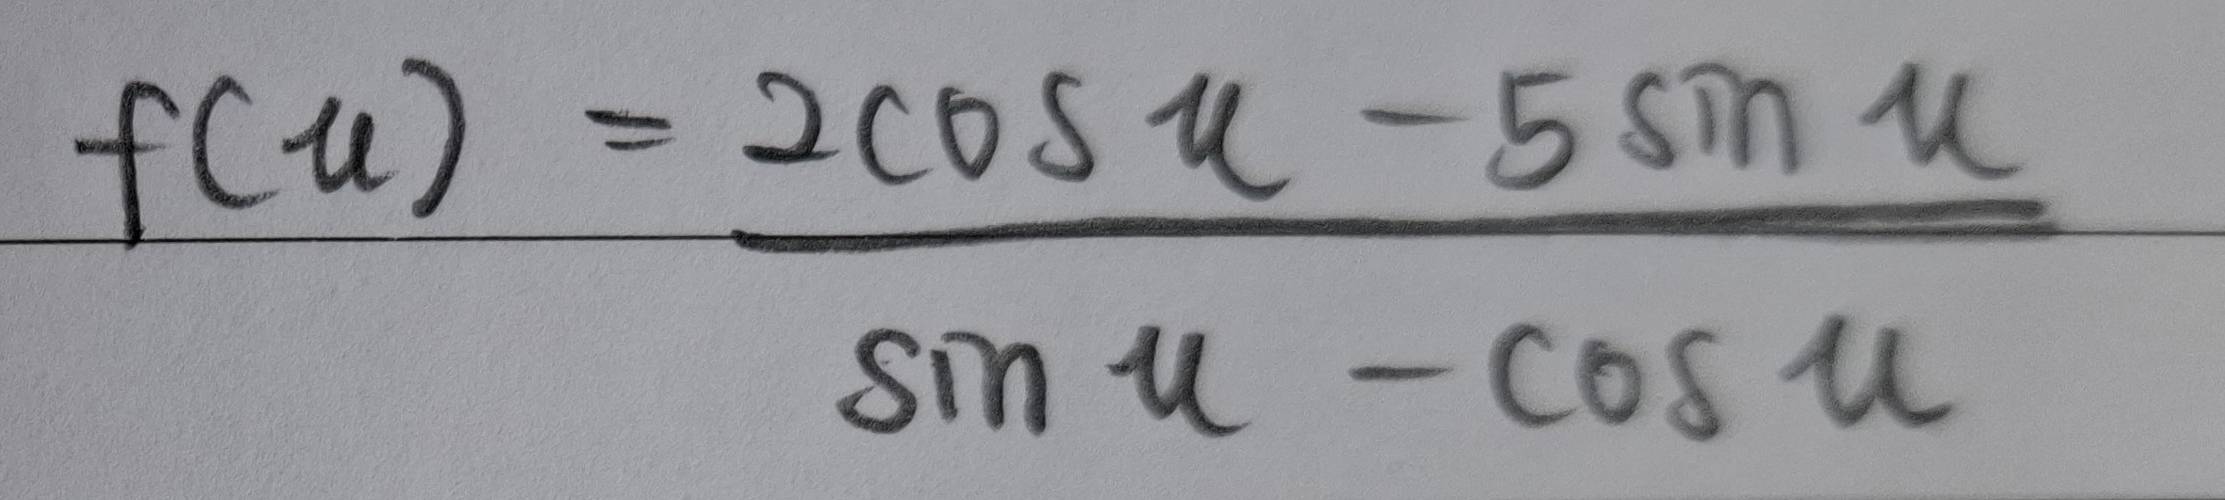 f(u) = 2cos u - 5 sin u
sin u - cos u